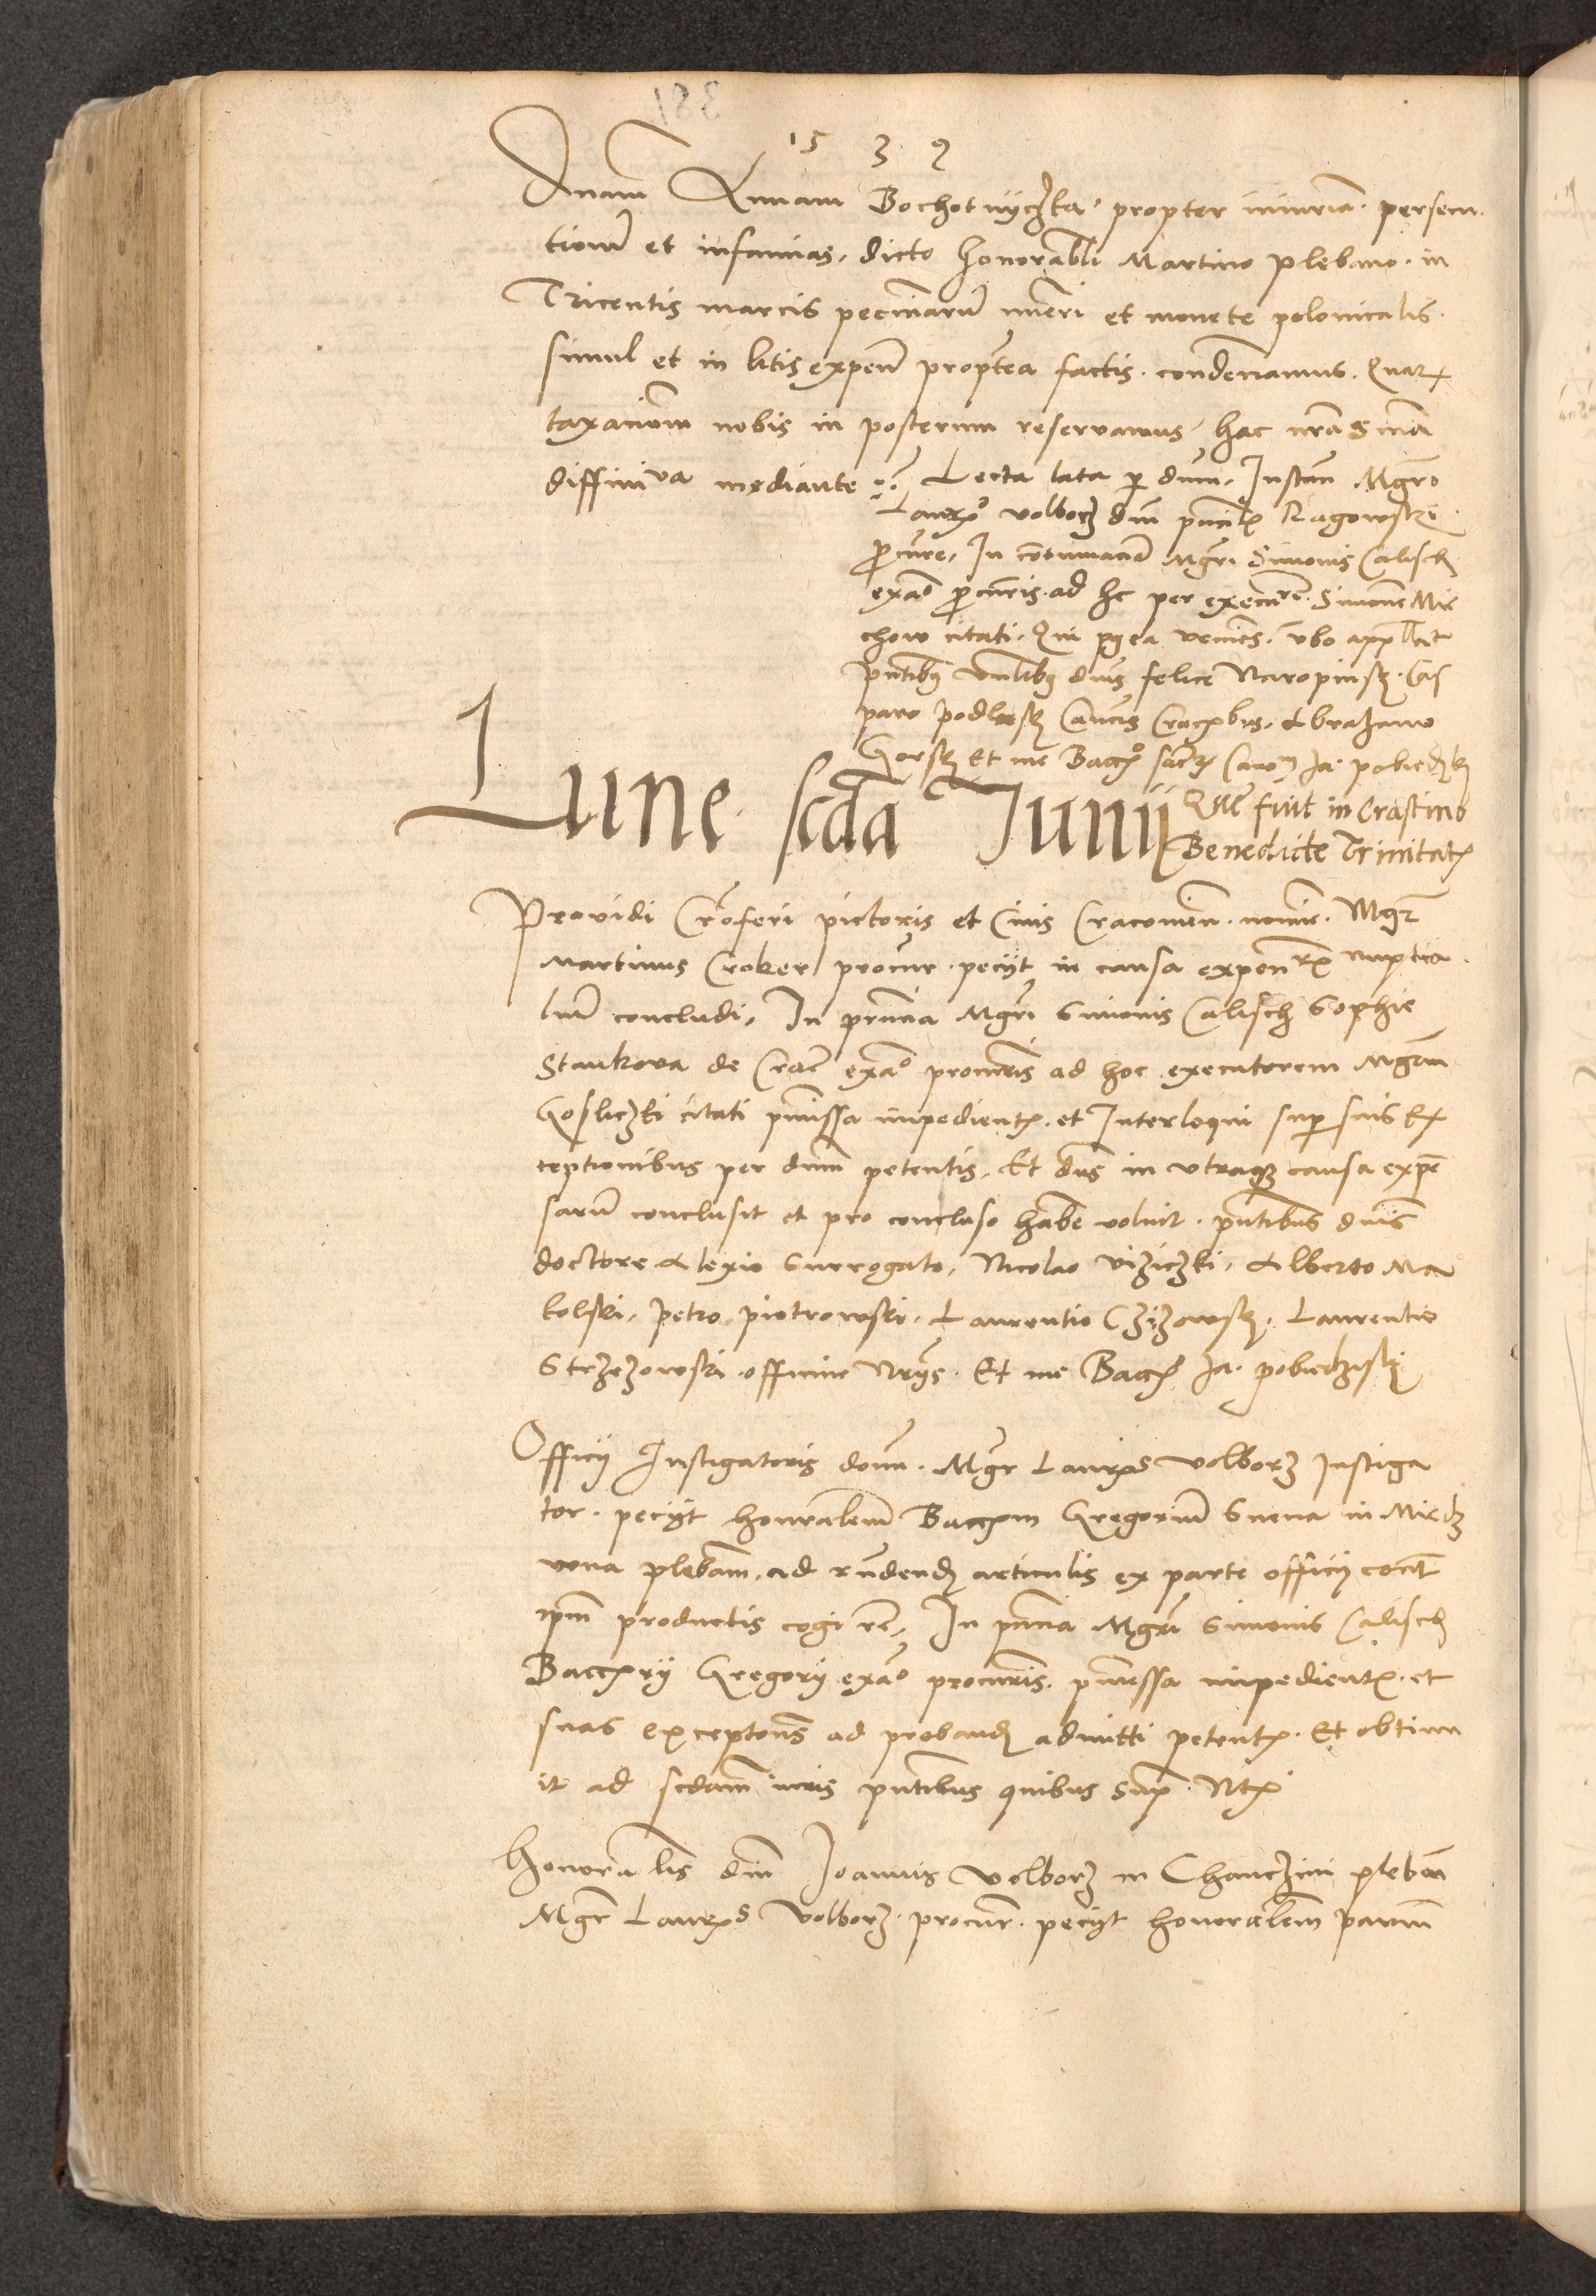 1539
Dnam Annam Bochotnyczka propter iniuriam persecu
tionem et infamias, dicto honorabli Martino plebano in
Tricentis marcis pecuniarum numeri et monete polonicalis
simul et in litis expens propterea factis condemnamus. Quar
taxacionem nobis in posterum reservamus hac nra Sntia
diffinitiva mediante Lecta lata per dnum. Instan Mgro
Laurentio volborz dni Ragowski
procure. In contumaciam Mgri Simonis Calisch
exadverso procuris ad hc per executorem Simonem Mie
chow citati. Qui postea veniens vbo appellavit
pntibus dnis felice Naropinsk Cas
paro podlesk Abrahamo
Gorsk Et me Ja. pobiedzisk
Lune scda Junii Que fuit in Crastino
Benedicte Trinitatis
Providi Croferi pictoris et Civis Cracovien. nomine. Mgr
Martinus Croker procur. peciyt in causa expensarum nuptia
lium concludi. In pntia Mgri Simonis Calisch Sophie
Stankova de Crac exadverso procuris ad hoc executorem Mgrum
Gosliczki citati premissa impedientis. et Interloqui super suis Ex
ceptionibus per dnum petentis. Et dns in utraque causa expen
sarum conclusit et pro concluso habere voluit. pntibus dnis
doctore Alexio Surrogato, Nicolao Viziczki, Alberto Ma
kolski, Petro piotrowski, Laurentio Czizowsk, Laurentio
Strzezowski officine Nriis. Et me Ja. pobiedzisk
Officij Instigatoris domi. Mgr Laurentius Volborz Instiga
tor. peciyt honoralem Gregorium Suena in Mirdz
plebanum, ad rndend articulis ex parte officij cont
ipm productis cogi In pntia Mgri Simonis Calisch
Gregorij exadverso procuris. premissa impedientis. et
suas exceptiones ad proband admitti petentis. Et obtinu
it ad scdam iuris pntibus quibus supra
Honorabilis dni Joannis Volborz in Chanczini plebani
Mgr Laurentius Volborz procur. peciyt honoralem